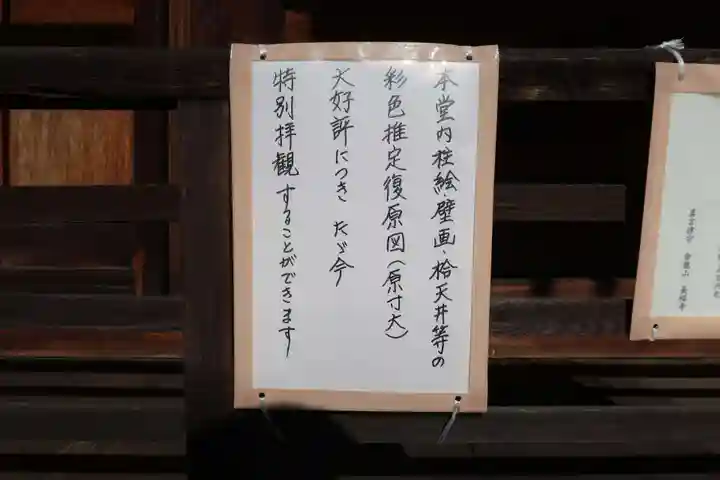 本堂内柱絵、壁画、格天井等の
彩色推定復原図(原寸大)
大好評につき たゞ今
特別拝観することができます